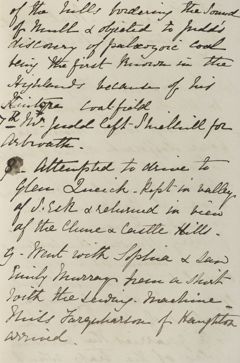 of the hills bordering the Sound
of Mull & objected to Judd's
discovery of palæozoic coal
being the first known in the
Highlands because of his
Kintyre coalfield
7th Mr Judd left Smithill for
Arbroath.
8. Attempted to drive to
Glen Queich. Kept in valley
of S. Esk & returned in view
of the Clune & Castle Hill.
9. Went with Sophia & saw
Emily Murray from a Shirt
with the sewing-machine -
Miss Farquharson of Haughton
arrived.